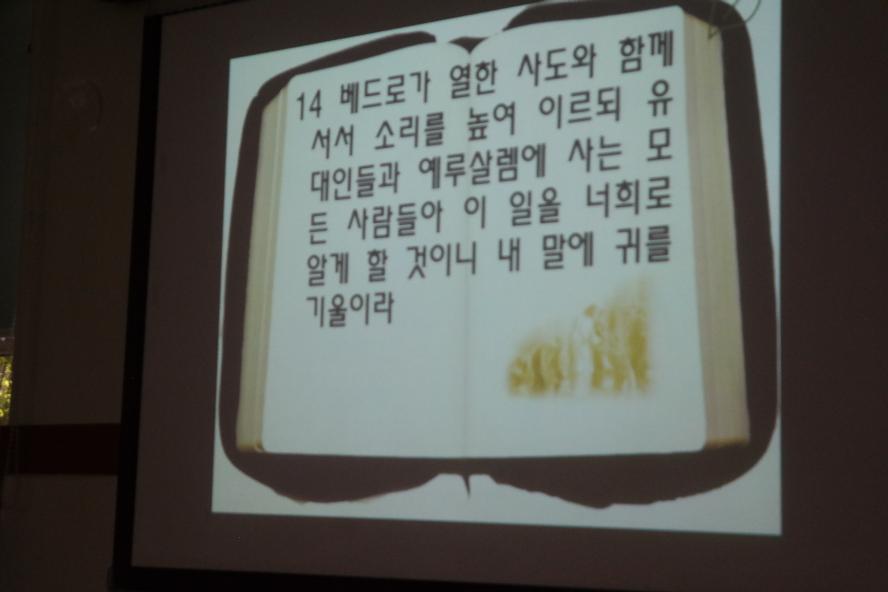 14 베드로가 열한 사도와 함께
서서 소리를 높여 이르되 유
대인들과 예루살렘에 사는 모
든 사람들아 이 일을 너희로
알게 할 것이니 내 말에 귀를
기울이라